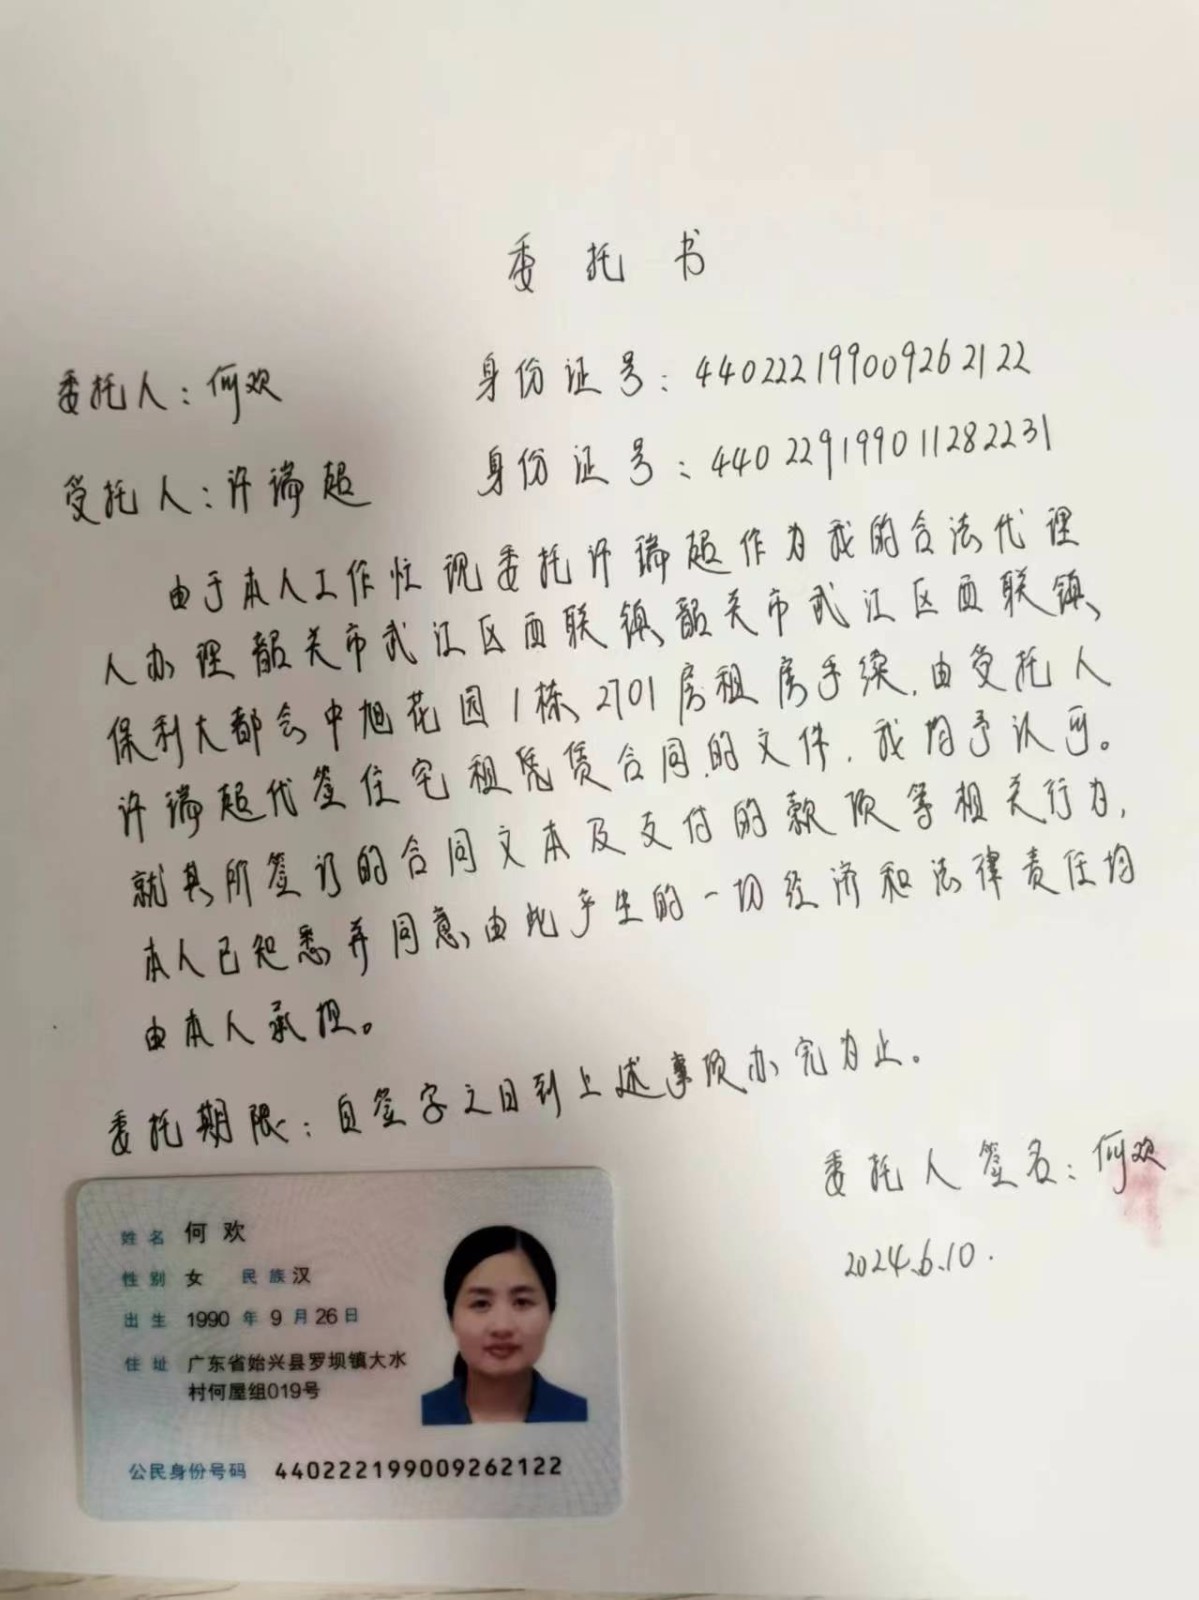 委托书
委托人：何欢 身份证号：440222199009262122
受托人：许瑞超 身份证号：440229199011282231
由于本人工作忙现委托许瑞超作为我的合法代理
人办理韶关市武江区西联镇、韶关市武江区西联镇、
保利大都会中旭花园1栋、2701房租房手续，由受托人
许瑞超代签住宅租凭赁合同的文件，我均予认可。
就其所签订的合同文本及支付的款项等相关行为，
本人已知悉并同意，由此产生的一切经济和法律责任均
由本人承担。
委托期限：自签字之日到上述事项办完为止。
委托人签名：何欢
2024.6.10.
姓名 何欢
性别 女 民族 汉
出生 1990年9月26日
住址 广东省始兴县罗坝镇大水
村何屋组019号
公民身份号码 440222199009262122